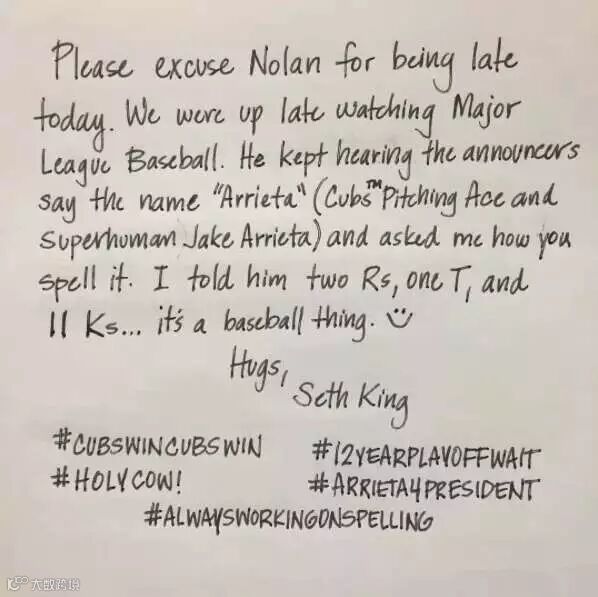 Please excuse Nolan for being late
today. We were up late watching Major
League Baseball. He kept hearing the announcers
say the name "Arrieta" (Cubs™ Pitching Ace and
Superhuman Jake Arrieta) and asked me how you
spell it. I told him two Rs, one T, and
11 Ks... it's a baseball thing. ☺
Hugs,
Seth King
#CUBSWINCUBSWIN #12YEARPLAYOFFWAIT
#HOLYCOW! #ARRIETA4PRESIDENT
#ALWAYSWORKINGONSPELLING
大数跨境